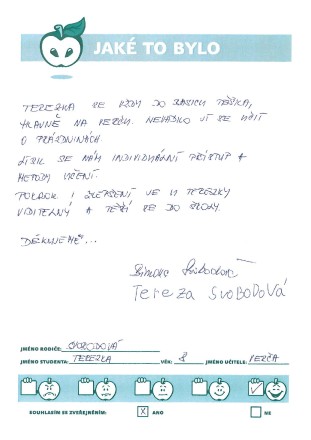 JAKÉ TO BYLO
TEREZKA SE VŽDY DO ŠKOLICH TĚŠILA,
HLAVNĚ NA PERČU. NEVADILO JÍ SE UČIT
O PRÁZDNINÁCH.
LÍBIL SE NÁM INDIVIDUÁLNÍ PŘÍSTUP A
METODY UČENÍ.
POKROK I ZLEPŠENÍ JE U TEREZKY
VIDITELNÝ A TĚŠÍ SE DO ŠKOLY.
DĚKUJEME...
Simona Svobodová
Tereza SVOBODOVÁ
JMÉNO RODIČE: SVOBODOVÁ
JMÉNO STUDENTA: TEREZKA VĚK: 8 JMÉNO UČITELE: PERČA
SOUHLASÍM SE ZVEŘEJNĚNÍM: X ANO NE